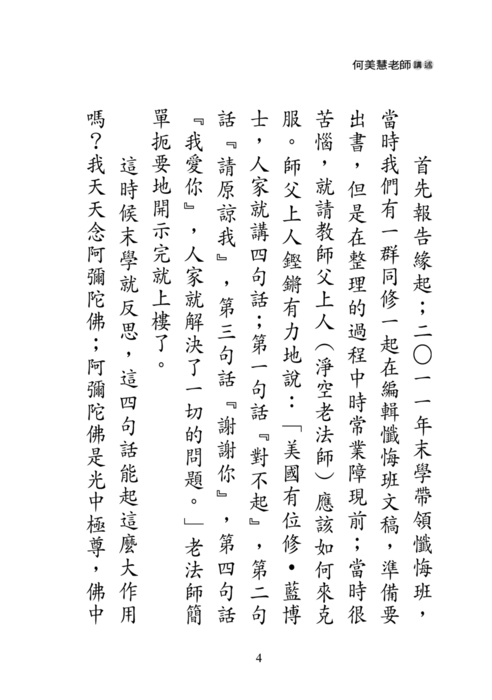 何美慧老師講述
首先報告緣起；二〇一一年末學帶領懺悔班，
當時我們有一群同修一起在編輯懺悔班文稿，準備要
出書，但是在整理的過程中時常業障現前；當時很
苦惱，就請教師父上人（淨空老法師）應該如何來克
服。師父上人鏗鏘有力地說：「美國有位修•藍博
士，人家就講四句話；第一句話『對不起』，第二句
話『請原諒我』，第三句話『謝謝你』，第四句話
『我愛你』，人家就解決了一切的問題。」老法師簡
單扼要地開示完就上樓了。
這時候末學就反思，這四句話能起這麼大作用
嗎？我天天念阿彌陀佛；阿彌陀佛是光中極尊，佛中
4